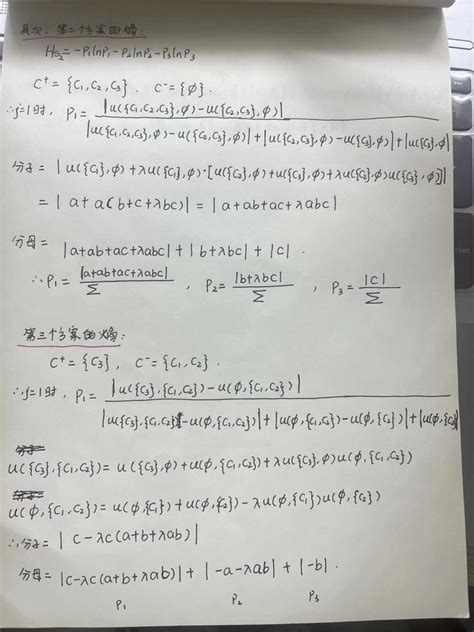 其次、第二个方案的熵:
H_{C_2} = -P_1lnP_1 - P_2lnP_2 - P_3lnP_3
C^+ = {C_1, C_2, C_3} . C^- = {∅} .
∴ j=1时, P_1 = |u({C_1,C_2,C_3},∅) - u({C_2,C_3},∅)| / |u({C_1,C_2,C_3},∅) - u({C_2,C_3},∅)| + |u({C_2,C_3},∅) - u({C_3},∅)| + |u({C_3},∅)|
分子 = | u({C_1},∅) + λu({C_1},∅)·[u({C_2},∅) + u({C_3},∅) + λu({C_2},∅)u({C_3},∅)]|
= | a + a(b+c+λbc)| = | a+ab+ac+λabc|
分母 = |a+ab+ac+λabc| + |b+λbc| + |c| .
∴ P_1 = |a+ab+ac+λabc| / Σ , P_2 = |b+λbc| / Σ , P_3 = |c| / Σ
第三个方案的熵:
C^+ = {C_3} , C^- = {C_1, C_2} .
∴ j=1时, P_1 = |u({C_3},{C_1,C_2}) - u(∅,{C_1,C_2})| / |u({C_3},{C_1,C_2}) - u(∅,{C_1,C_2})| + |u(∅,{C_1,C_2}) - u(∅,{C_2})| + |u(∅,{C_2
u({C_3},{C_1,C_2}) = u({C_3},∅) + u(∅,{C_1,C_2}) + λu({C_3},∅)u(∅,{C_1,C_2})
u(∅,{C_1,C_2}) = u(∅,{C_1}) + u(∅,{C_2}) - λu(∅,{C_1})u(∅,{C_2})
∴ 分子 = | c - λc(a+b+λab)|
分母 = |c-λc(a+b+λab)| + | -a-λab| + | -b| .
P_1 P_2 P_3